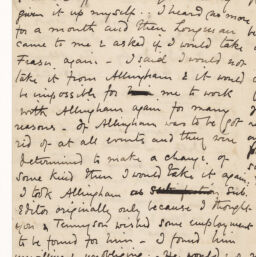 given it up myself. I heard no more
for a month and then Longman
came to me & asked if I would take
Fraser again. I said I would not
take it from Allingham & it would
be impossible for me to work
with Allingham again for many
reasons. If Allingham was to be got
rid of at all events and they were
determined to make a change of
some kind then I would take it again.
I took Allingham as Sub
Editor originally only because I thought
you & Tennyson wished some employment
to be found for him. I found him